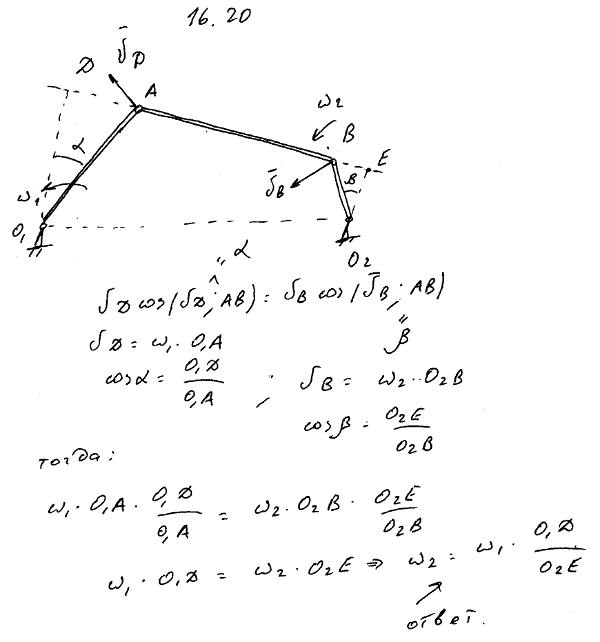 16.20
D
v̄D
A
ω₂
B
E
α
ω₁
v̄B
β
O₁
O₂
α
"
vD cos(v̄D^; AB) = vB cos(v̄B; AB)
"
β
vD = ω₁ · O₁A
cosα = O₁D / O₁A ; vB = ω₂ · O₂B
cosβ = O₂E / O₂B
тогда:
ω₁ · O₁A · O₁D / O₁A = ω₂ · O₂B · O₂E / O₂B
ω₁ · O₁D = ω₂ · O₂E ⇒ ω₂ = ω₁ · O₁D / O₂E
ответ.